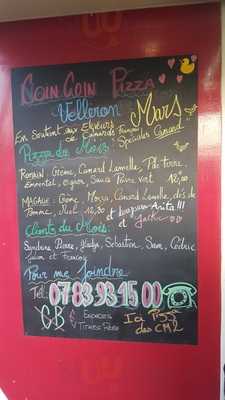 Coin Coin Pizza
Velleron Mars
En Soutient aux Eleveurs
de Canards Français
Spéciales Canard
Pizza du Mois:
Romain: Crème, Canard Lamelle, Pde terre,
Emmental, oignon, Sauce Poivre Vert 12,00
Magalie: Crème, Mozza, Canard Lamelle, dés de
Pomme, Miel 12,30 et
Clients du Mois:
Sandrine, Pierre, Gladys, Sebastien, Sam, Cedric
Julien et François
Pour me Joindre
Tél: 07 83 93 15 00
CB € Especes
Titres Resto
Ici Pizza
des CM2